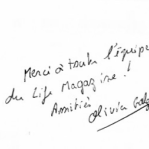 Merci à toute l'équipe
du Life Magazine !
Amitiés
Olivier